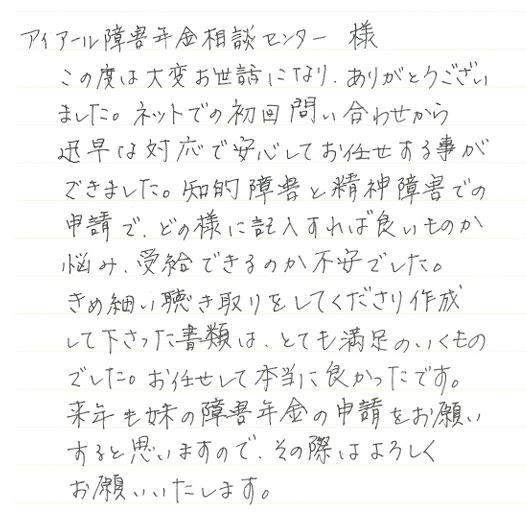 アイアール障害年金相談センター 様
この度は大変お世話になり、ありがとうござい
ました。ネットでの初回問い合わせから
迅早は対応で安心してお任せする事が
できました。知的障害と精神障害での
申請で、どの様に記入すれば良いものか
悩み、受給できるのか不安でした。
きめ細い聴き取りをしてくださり作成
して下さった書類は、とても満足のいくもの
でした。お任せして本当に良かったです。
来年も妹の障害年金の申請をお願い
すると思いますので、その際はよろしく
お願いいたします。